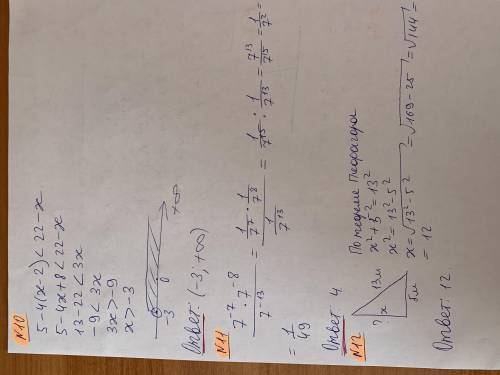 N10
5-4(x-2)<22-x
5-4x+8<22-x
13-22<3x
-9<3x
3x>-9
x>-3
-3 0 +∞
Ответ: (-3; +∞)
N11
7⁻⁷ · 7⁻⁸ / 7⁻¹³ = 1/7⁷ · 1/7⁸ / 1/7¹³ = 1/7¹⁵ : 1/7¹³ = 7¹³/7¹⁵ = 1/7² =
= 1/49
Ответ: 4
N12
? x 13м 5м
По теореме Пифагора
x²+5²=13²
x²=13²-5²
x=√13²-5² = √169-25 = √144 =
= 12
Ответ: 12